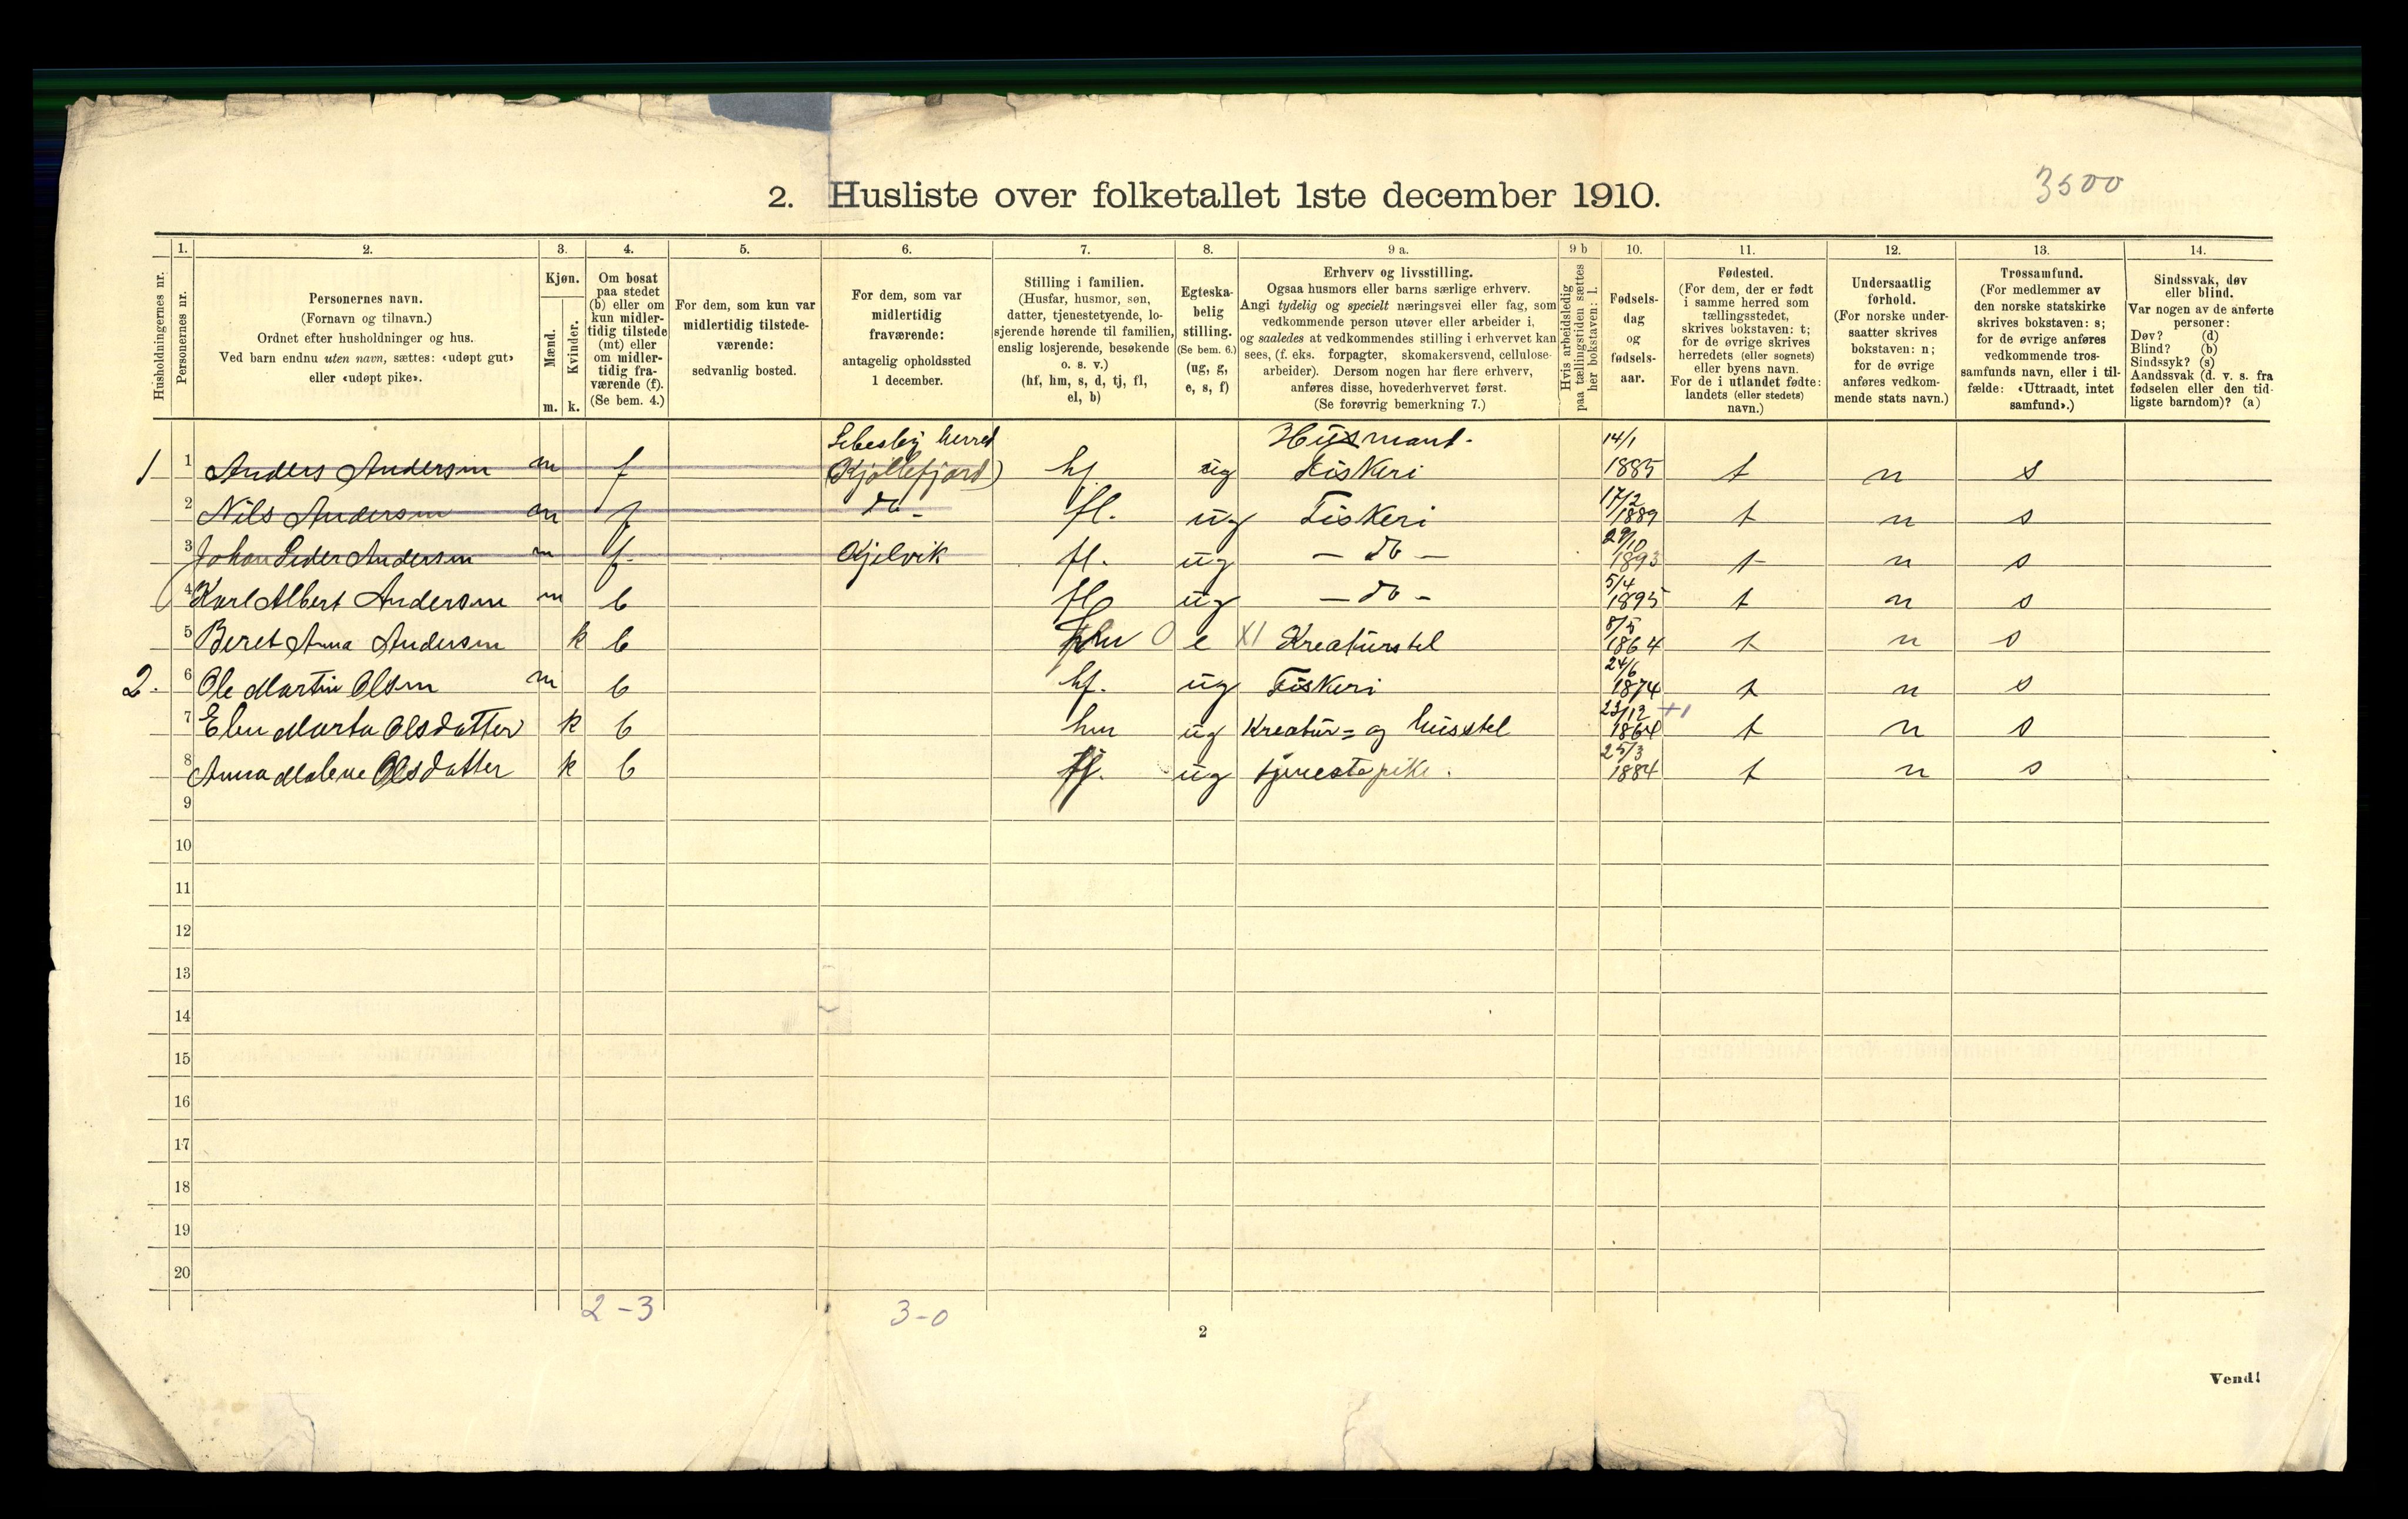 3500
2. Husliste over folketallet 1ste december 1910.
Husholdningernes nr.
1.
Personernes nr.
2.
Personernes navn.
(Fornavn og tilnavn.)
Ordnet efter husholdninger og hus.
Ved barn endnu uten navn, sættes: «udøpt gut»
eller «udøpt pike».
3.
Kjøn.
Mænd.
Kvinder.
m. k.
4.
Om bosat
paa stedet
(b) eller om
kun midler-
tidig tilstede
(mt) eller
om midler-
tidig fra-
værende (f).
(Se bem. 4.)
5.
For dem, som kun var
midlertidig tilstede-
værende:
sedvanlig bosted.
6.
For dem, som var
midlertidig
fraværende:
antagelig opholdssted
1 december.
7.
Stilling i familien.
(Husfar, husmor, søn,
datter, tjenestetyende, lo-
sjerende hørende til familien,
enslig losjerende, besøkende
o. s. v.)
(hf, hm, s, d, tj, fl,
el, b)
8.
Egteska-
belig
stilling.
(Se bem. 6.)
(ug, g,
e, s, f)
9 a.
Erhverv og livsstilling.
Ogsaa husmors eller barns særlige erhverv.
Angi tydelig og specielt næringsvei eller fag, som
vedkommende person utøver eller arbeider i,
og saaledes at vedkommendes stilling i erhvervet kan
sees, (f. eks. forpagter, skomakersvend, cellulose-
arbeider). Dersom nogen har flere erhverv,
anføres disse, hovederhvervet først.
(Se forøvrig bemerkning 7.)
9 b
Hvis arbeidsledig
paa tællingstiden sættes
her bokstaven: l.
10.
Fødsels-
dag
og
fødsels-
aar.
11.
Fødested.
(For dem, der er født
i samme herred som
tællingsstedet,
skrives bokstaven: t;
for de øvrige skrives
herredets (eller sognets)
eller byens navn.
For de i utlandet fødte:
landets (eller stedets)
navn.)
12.
Undersaatlig
forhold.
(For norske under-
saatter skrives
bokstaven: n;
for de øvrige
anføres vedkom-
mende stats navn.)
13.
Trossamfund.
(For medlemmer av
den norske statskirke
skrives bokstaven: s;
for de øvrige anføres
vedkommende tros-
samfunds navn, eller i til-
fælde: «Uttraadt, intet
samfund».)
14.
Sindssvak, døv
eller blind.
Var nogen av de anførte
personer:
Døv? (d)
Blind? (b)
Sindssyk? (s)
Aandssvak (d. v. s. fra
fødselen eller den tid-
ligste barndom)? (a)
Lebesby herred Husmand. 14/1
1 1 Anders Andersen m f (Kjøllefjord) hf ug Fiskeri 1885 t n s
2 Nils Andersen m f do - fl. ug Fiskeri 17/2 1889 t n s
3 Johan Peder Andersen m f Kjelvik fl. ug - do - 29/10 1893 t n s
4 Karl Albert Andersen m b fl ug - do - 5/4 1895 t n s
5 Beret Anna Andersen k b hm 0 e X1 Kreaturstel 8/5 1864 t n s
2. 6 Ole Martin Olsen m b hf. ug Fiskeri 24/6 1874 t n s
7 Elen Marta Olsdatter k b hm ug Kreatur= og husstel 23/12 1860 +1 t n s
8 Anna Malene Olsdatter k b tj. ug tjenestepike. 25/3 1884 t n s
9
10
11
12
13
14
15
16
17
18
19
20
2-3 3-0
2
Vend!